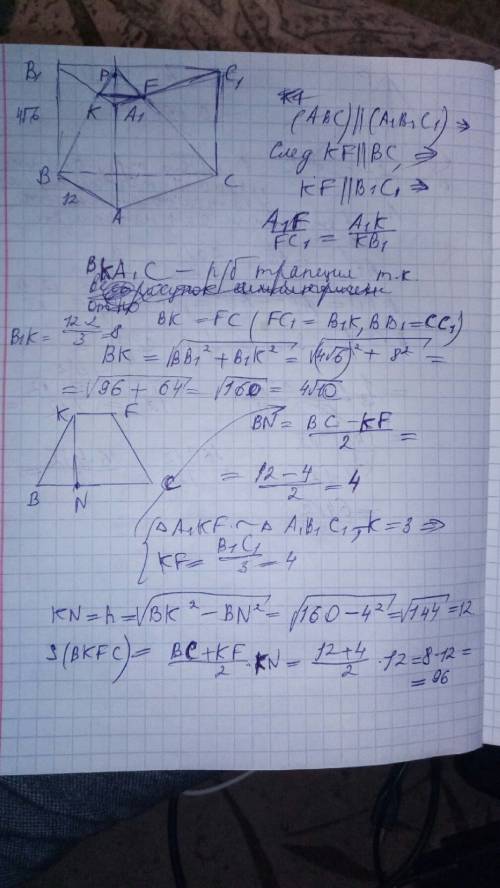 B₁ P F C₁
K A₁
4√6
B C
12
A
(ABC)||(A₁B₁C₁) ⇒
след KF||BC ⇒
KF||B₁C₁ ⇒
A₁F/FC₁ = A₁K/KB₁
р/б трапеция т.к.
B₁K = 12·2/3 = 8 BK = FC (FC₁ = B₁K, BB₁ = CC₁)
BK = √(BB₁² + B₁K²) = √((4√6)² + 8²) =
= √(96 + 64) = √160 = 4√10
K F
BN = (BC - KF)/2 =
B N C
= (12 - 4)/2 = 4
△A₁KF ~ △A₁B₁C₁, K = 3 ⇒
KF = B₁C₁/3 = 4
KN = h = √(BK² - BN²) = √(160 - 4²) = √144 = 12
S(BKFC) = (BC + KF)/2 · KN = (12 + 4)/2 · 12 = 8·12 =
= 96